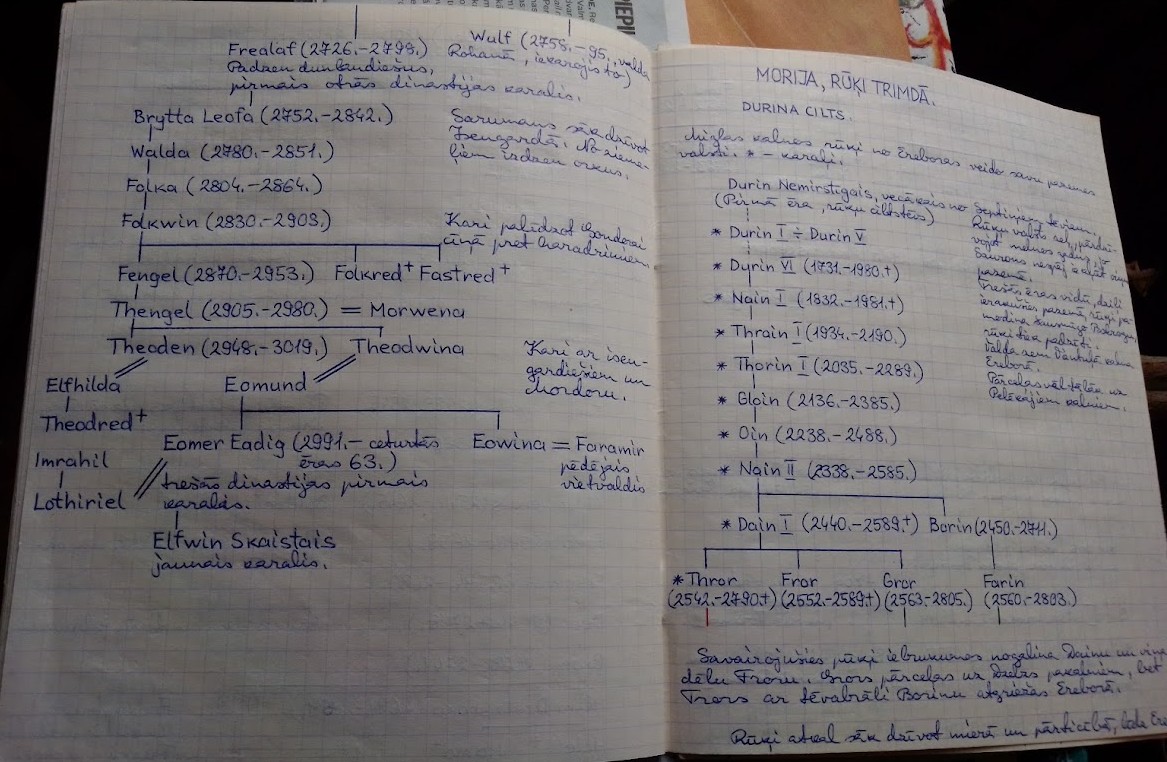 PIEPI
Frealaf (2726.-2798.)
Padzen dunlandiešus,
pirmais otrās dinastijas karalis.
Wulf (2758.-95., valda
Rohanā, iekarojis to)
Brytta Leofa (2752.-2842.)
Walda (2780.-2851.)
Folka (2804.-2864.)
Folkwin (2830.-2903.)
Sarumans sāk dzīvot
Isengardā. No zieme-
ļiem izdzen orkus.
Kari palīdzot Gondorai
cīņā pret haradrimiem.
Fengel (2870.-2953.) Folkred+ Fastred+
Thengel (2905.-2980.) = Morwena
Theoden (2948.-3019.) Theodwina
Kari ar isen-
gardiešiem un
Mordoru.
Elfhilda Eomund
Theodred+
Eomer Eadig (2991.- ceturtās
ēras 63.)
trešās dinastijas pirmais
karalis.
Eowina = Faramir
pēdējais
vietvaldis
Imrahil
Lothiriel
Elfwin Skaistais
jaunais karalis.
MORIJA, RŪĶI TRIMDĀ.
DURINA CILTS.
Miglas kalnos rūķi no Ereboras veido savu pazemes
valsti. * - karaļi.
Durin Nemirstīgais, vecākais no Septiņiem tēviem.
(Pirmā ēra, rūķu ciltstēvs)
* Durin I ÷ Durin V
* Durin VI (1731.-1980.+)
* Nain I (1832.-1981.+)
* Thrain I (1934.-2190.)
* Thorin I (2035.-2289.)
* Gloin (2136.-2385.)
* Oin (2238.-2488.)
* Nain II (2338.-2585.)
Rūķu valsts
Saurons nespēj
pazemē.
Trešās ēras vidū, dziļi
pazemē, rūķi pa-
modina
rūķi tiek padzīti.
Valda zem Vientuļā kalna
Ereborā.
Pārceļas vēl tālāk uz
Pelēkajiem kalniem.
* Dain I (2440.-2589.+) Borin (2450.-2711.)
* Thror Fror Gror Farin
(2542.-2790.+) (2552.-2589.+) (2563.-2805.) (2560.-2803.)
Savairojušies pūķi iebrukumos nogalina Dainu un viņa
dēlu Froru. Grors pārceļas uz Dzelzs pakalniem, bet
Trors ar tēvabrāli Borinu atgriežas Ereborā.
Rūķi atkal sāk dzīvot mierā un pārticībā,